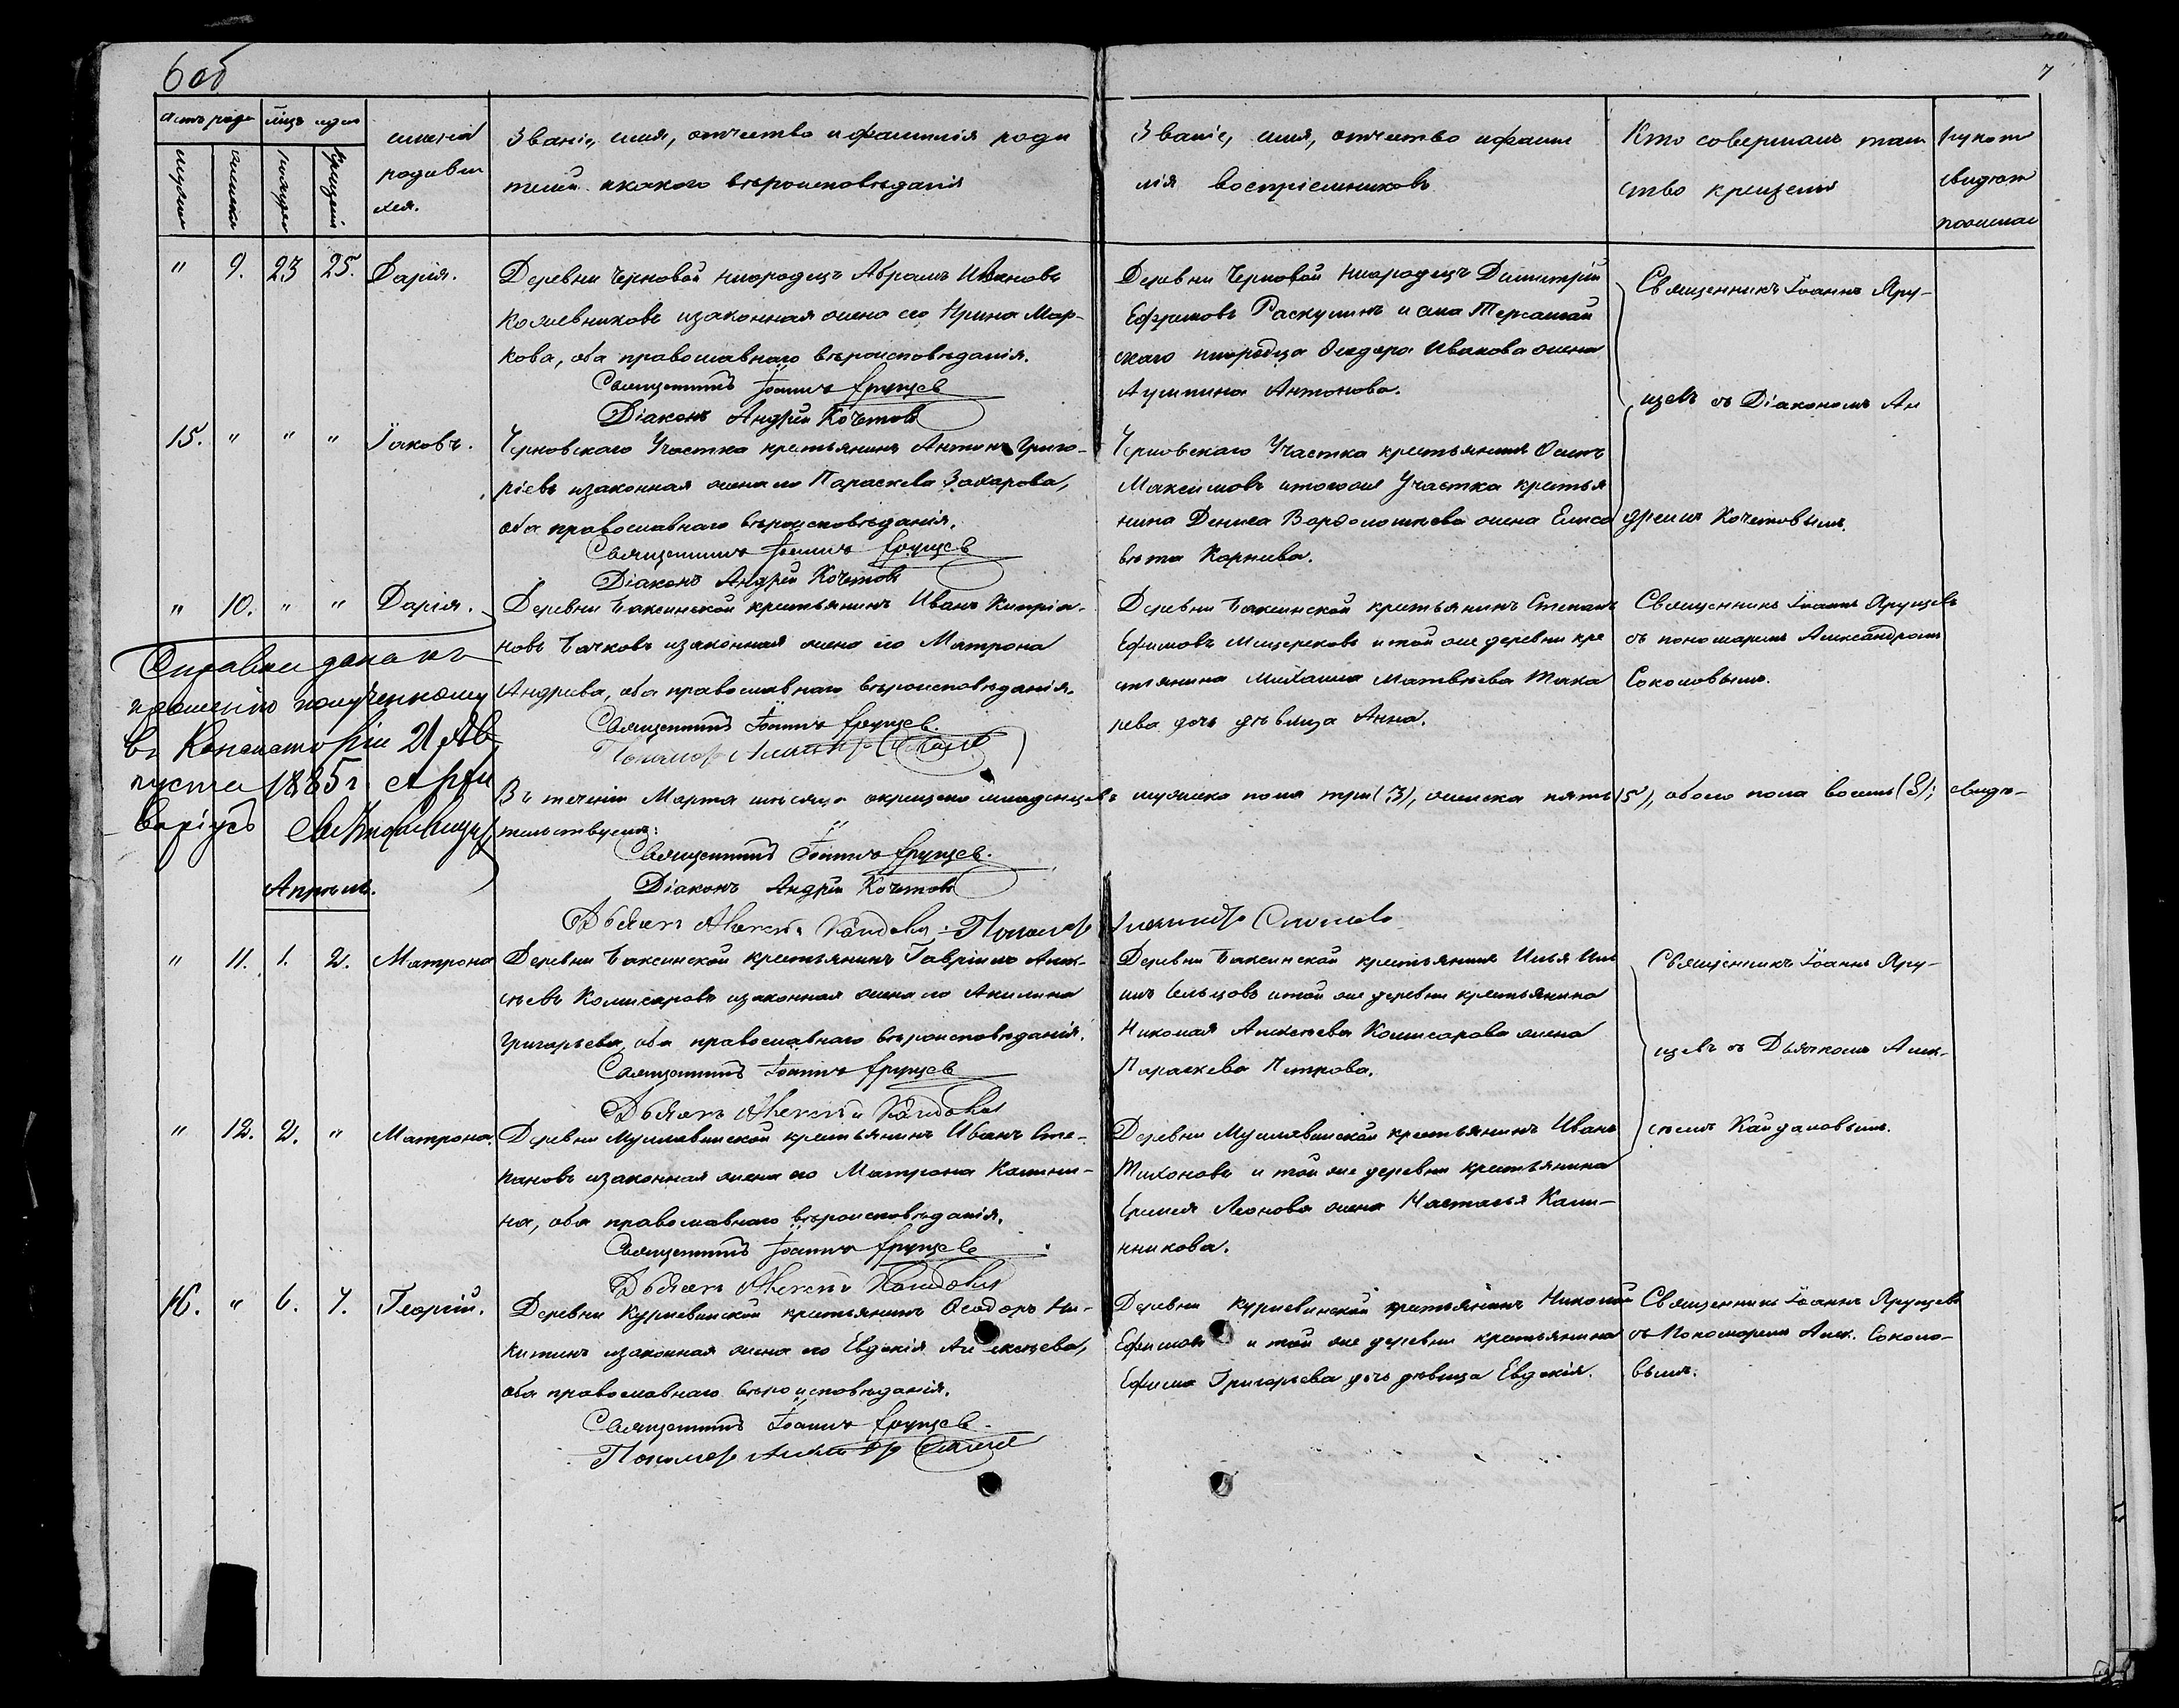 6 об
7
Счетъ родв
Мѣсяцъ и день
мужска
женска
рожден
крещенія
имена
родивш
ихся.
Званіе, имя, отчество и фамилія роди
телей и какого вѣроисповѣданія
Званіе, имя, отчество и фами
лія воспріемниковъ
Кто совершалъ таин
ство крещенія
рукопр
свидѣт
по желан
" 9. 23 25. Дарія.
Деревни Черновой инородецъ Абрамъ Ивановъ
Кожевниковъ и законная жена его Ирина Мар-
кова, оба православнаго вѣроисповѣданія.
Священникъ Іоаннъ Ярущев
Діаконъ Андрей Кочетовъ
Деревни Черновой инородецъ Димитрій
Ефремовъ Раскулинъ и
скаго инородца Ѳеодора Иванова жена
Устинья Антонова.
Священникъ Іоаннъ Яру-
щевъ съ Діакономъ Ан
дреемъ Кочетовымъ.
15. " " " Іаковъ.
Черновскаго Участка крестьянинъ Антонъ Григо-
ріевъ и законная жена его Параскева Захарова,
оба православнаго вѣроисповѣданія.
Священникъ Іоаннъ Ярущев
Діаконъ Андрей Кочетовъ
Черновскаго Участка крестьянинъ Осипъ
Максимовъ и того же Участка крестья
нина Дениса Вардоломѣева жена Елиса
вѣта Карнева.
" 10. " " Дарія.
Деревни Баксинской крестьянинъ Иванъ Кипріа-
новъ Бачковъ и законная жена его Матрона
Андреева, оба православнаго вѣроисповѣданія.
Священникъ Іоаннъ Ярущев.
Пономарь Александръ Соколов
Деревни Баксинской крестьянинъ Степанъ
Ефимовъ Мищереков и той же деревни кре
стьянина Михаила Матвѣева Така
рева дочь дѣвица Анна.
Священникъ Іоаннъ Ярущевъ
съ пономаремъ Александромъ
Соколовымъ.
Справка дана къ
прошенію полученному
въ Консисторіи 21 Ав
густа 1885 г. Архи
варіусъ
Въ теченіи Марта мѣсяца окрещено младенцевъ мужеска пола три (3), женска пять (5), обоего пола восемь (8); свидѣ-
тельствуемъ:
Священникъ Іоаннъ Ярущев.
Діаконъ Андрей Кочетовъ
Дьячекъ Алексѣй Кайдалов. Пономарь Александръ Соколовъ
Апрѣль.
" 11. 1. 2. Матрона
Деревни Баксинской крестьянинъ Гавріилъ Алек-
сѣевъ Комисаровъ и законная жена его Акилина
Григорьева, оба православнаго вѣроисповѣданія.
Священникъ Іоаннъ Ярущев
Дьячекъ Алексѣй Кайдалов
Деревни Баксинской крестьянинъ Илья Иль
инъ Сельцовъ и той же деревни крестьянина
Николая Алексѣева Комисарова жена
Параскева Петрова.
Священникъ Іоаннъ Яру-
щевъ съ Дьячкомъ Алек-
сѣемъ Кайдаловымъ.
" 12. 2. " Матрона.
Деревни крестьянинъ Иванъ Сте-
пановъ и законная жена его Матрона Калини-
на, оба православнаго вѣроисповѣданія.
Священникъ Іоаннъ Ярущев
Дьячекъ Алексѣй Кайдалов
Деревни крестьянинъ Иванъ
Тихоновъ и той же деревни крестьянина
Леонова жена Настасья Кали-
нникова.
16. " 6. 7. Георгій.
Деревни Курневинской крестьянинъ Ѳеодоръ Ни-
китинъ и законная жена его Евдокія Алексѣева,
оба православнаго вѣроисповѣданія.
Священникъ Іоаннъ Ярущев.
Пономарь Александръ Соколов
Деревни Курневинской крестьянинъ Николай
Ефимовъ и той же деревни крестьянина
Ефима Григорьева дочь дѣвица Евдокія.
Священникъ Іоаннъ Ярущевъ
съ Пономаремъ Алек. Соколо-
вымъ.